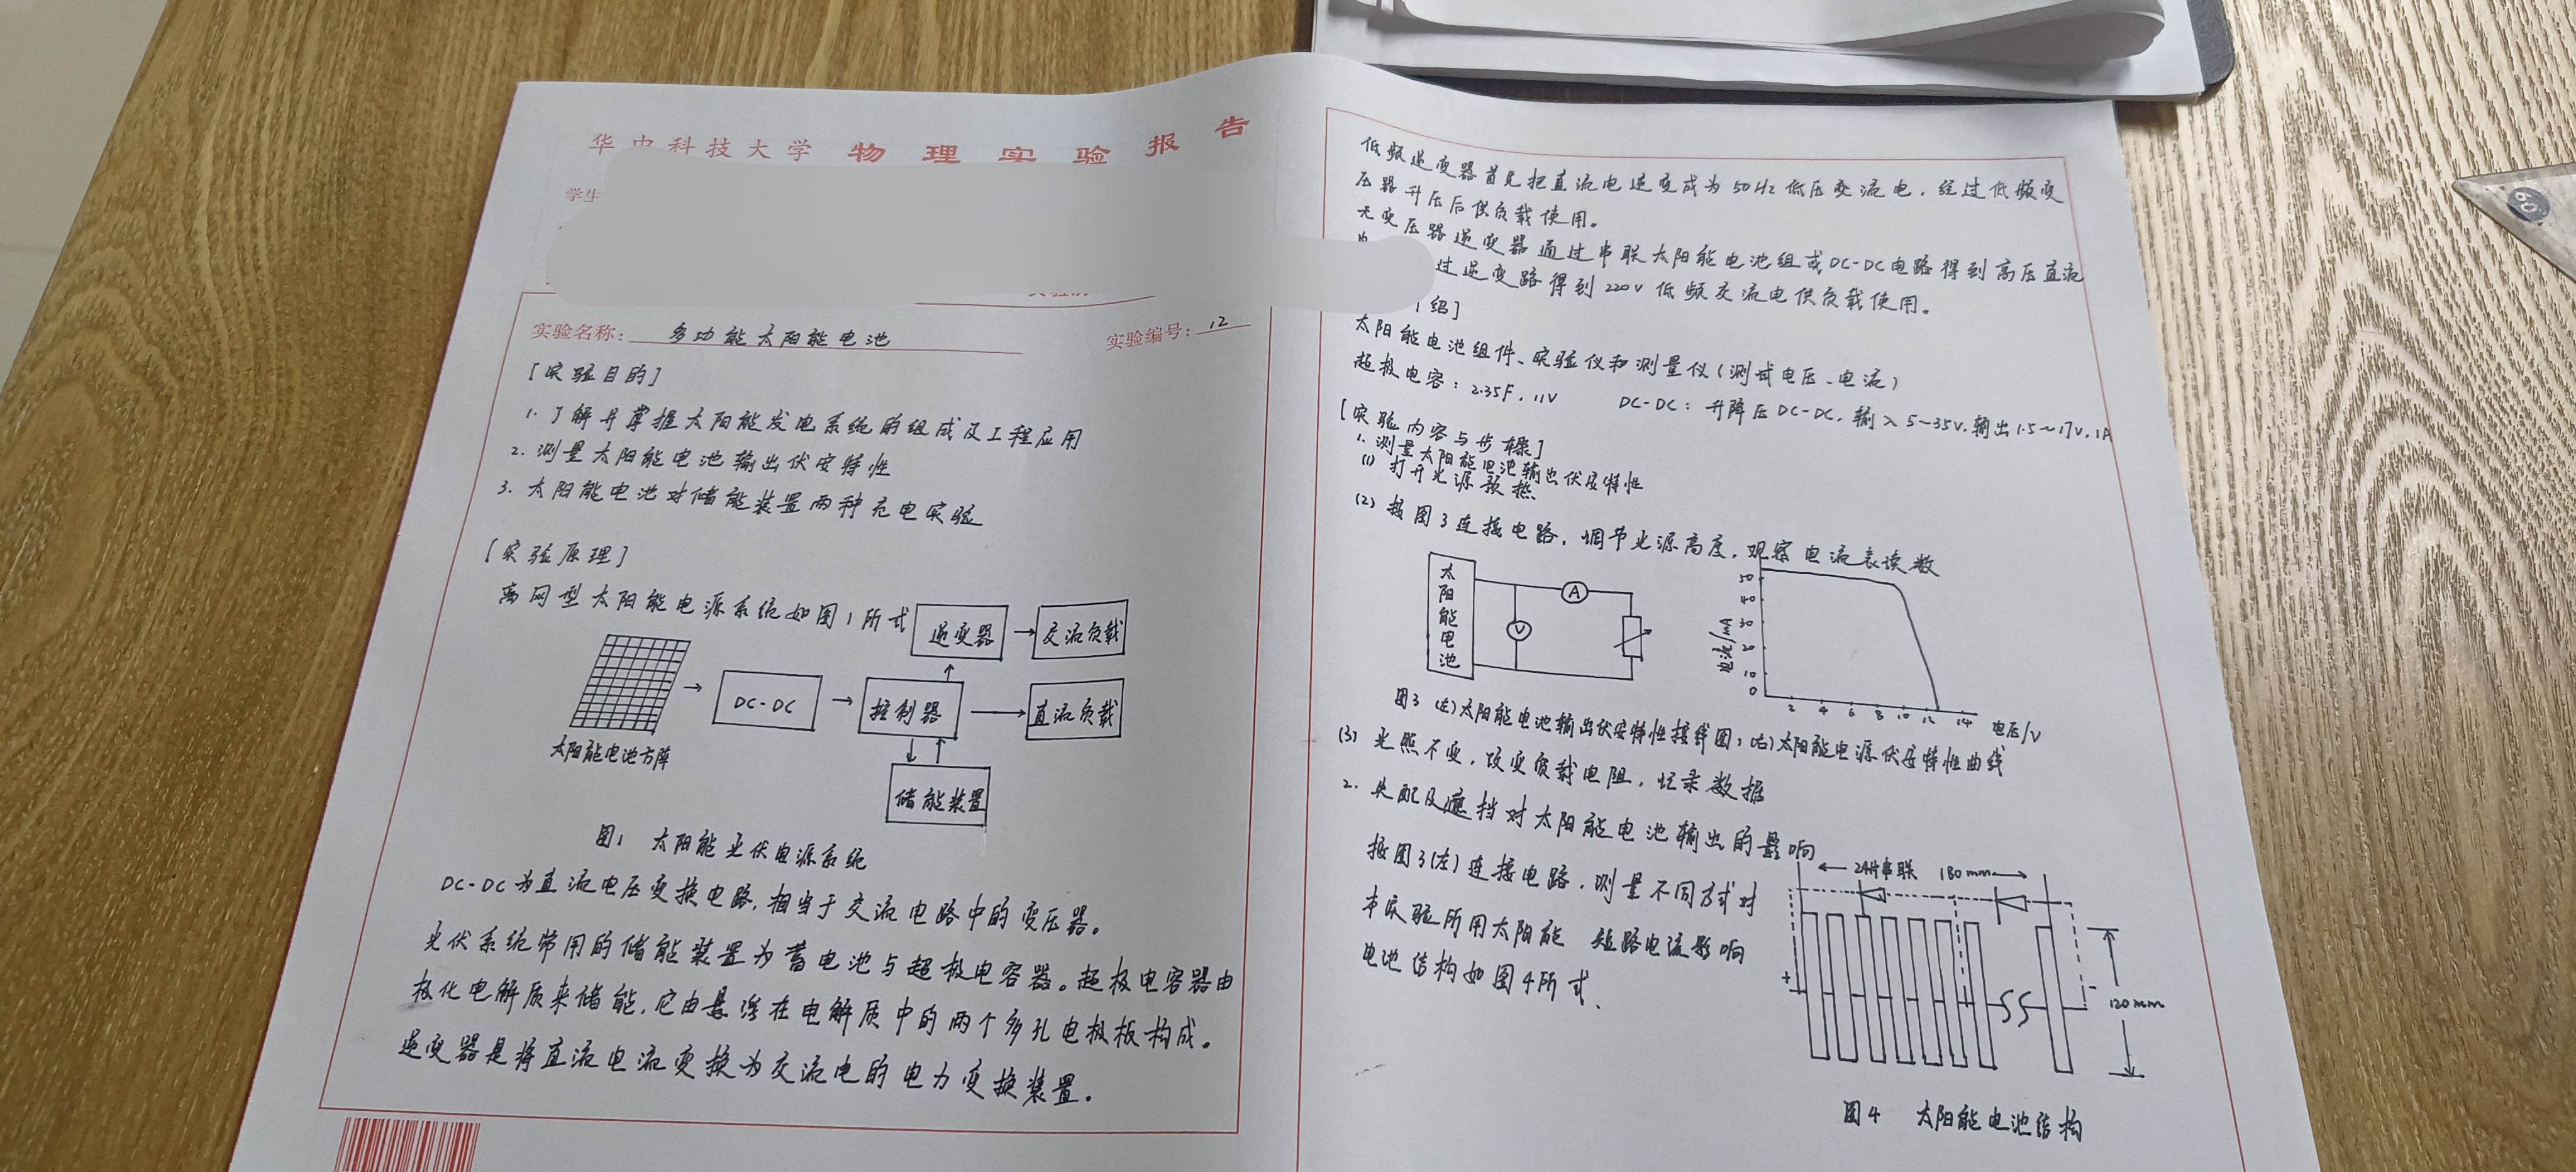 华中科技大学 物理实验报告
学生
实验名称： 多功能太阳能电池 实验编号：12
[实验目的]
1. 了解并掌握太阳能发电系统的组成及工程应用
2. 测量太阳能电池输出伏安特性
3. 太阳能电池对储能装置两种充电实验
[实验原理]
离网型太阳能电源系统如图1所式
逆变器
交流负载
DC-DC
控制器
直流负载
太阳能电池方阵
储能装置
图1 太阳能光伏电源系统
DC-DC为直流电压变换电路，相当于交流电路中的变压器。
光伏系统常用的储能装置为蓄电池与超极电容器。超极电容器由
极化电解质来储能，它由悬浮在电解质中的两个多孔电极板构成。
逆变器是将直流电流变换为交流电的电力变换装置。
低频逆变器首先把直流电逆变成为50Hz低压交流电，经过低频变
压器升压后供负载使用。
无变压器逆变器通过串联太阳能电池组或DC-DC电路得到高压直流
过逆变路得到220V低频交流电供负载使用。
绍]
太阳能电池组件、实验仪和测量仪（测试电压、电流）
超极电容：2.35F，11V DC-DC：升降压DC-DC，输入5~35V，输出1.5~17V，1A
[实验内容与步骤]
1. 测量太阳能电池输出伏安特性
(1) 打开光源预热
(2) 按图3连接电路，调节光源高度，观察电流表读数
太阳能电池
A
V
电流/mA
50
40
30
10
0
2 4 6 8 10 12 14 电压/V
图3 (左)太阳能电池输出伏安特性接线图；(右)太阳能电源伏安特性曲线
(3) 光照不变，改变负载电阻，记录数据
2. 失配及遮挡对太阳能电池输出的影响
按图3(左)连接电路，测量不同方式对
本实验所用太阳能 短路电流影响
电池结构如图4所式、
24片串联 180mm
+
-
120mm
图4 太阳能电池结构
60